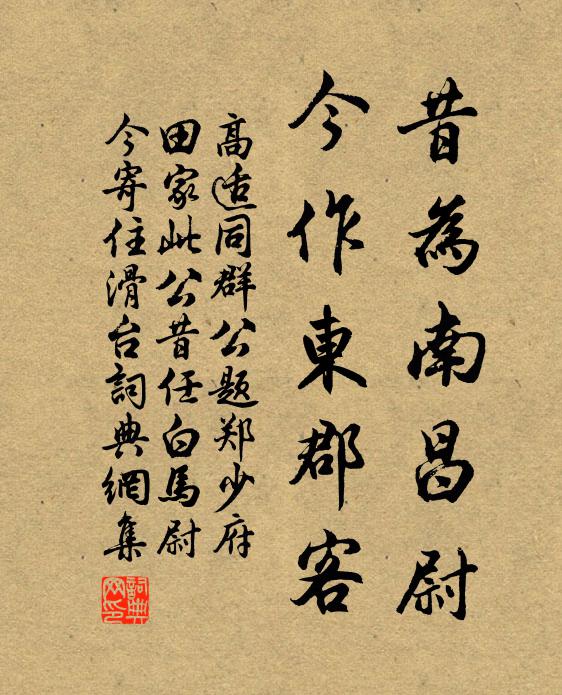 昔為南昌尉
今作東郡客
高适同群公题郑少府
田家此公昔任白馬尉
今寄住滑台詞典網集
詞典网印